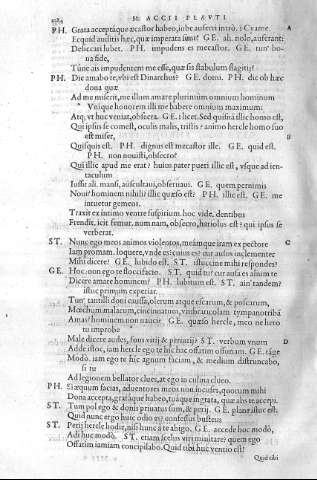 M. ACCII PLAVTI
PH. Grata acceptáque æcastor habeo, iube auferri intrò. i Cyame. A
Ecquid auditis hæc, quæ imperata sunt? GE. ah. nolo, auferant:
Deliccari lubet. PH. impudens es mecastor. GE. tun' bo-
na fide,
Tune ais impudentem me esse, quæ sis stabulum flagitij?
PH. Die amabo te, vbi est Dinarchus? GE. domi. PH. dic ob hæc
dona quæ
Ad me miserit, me illum amare plurimum omnium hominum
Vnique honorem illi me habere omnium maximum:
Atq; vt huc veniat, obsecra. GE. licet. Sed quisna illic homo est,
Qui ipsus se comest, oculis malis, tristis? animo hercle homo suo
est miser,
Quisquis est. PH. dignus est mecastor ille. GE. quid est.
PH. non nouisti, obsecro?
Qui illic apud me erat? huius pater pueri illic est, vsque ad in-
taculum
Iussi ali. mansi, auscultaui, obseruaui. GE. quem pernimis
Noui? hominem nihili? illic quæso est? PH. illic est. GE. me
intuetur gemens.
Traxit ex intimo ventre suspirium. hoc vide. dentibus
Frendit. icit femur. num nam, obsecro, hariolus est? qui ipsus se
verberat.
ST. Nunc ego meos animos violentos, meámque iram ex pectore C
Iam promam. loquere, vnde es? cuius es? cur ausus mi inclementer
Misti dicere? GE. lubido est. ST. istuccine mihi respondes?
GE. Hoc. non ego te flocci facio. ST. quid tu? cur aula es alium te
Dicere amare hominem? PH. lubitum est. ST. ain' tandem?
istuc primum experiar.
Tun' tantilli doni caussa, olerum atque escarum, & poscarum,
Mœchum malacum, cincinnatum, vmbraticulam tympanotribã
Amas? hominem non nauci? GE. quæso hercle, meo ne hero
tu improbo
Male dicere audes, fons vitij & periurij? ST. verbum vnum D
Adde istoc, iam hercle ego te hîc hac offatim offinam. GE. tãge
Modò. iam ego te hîc agnum faciam, & medium distruncabo,
si tu
Ad legionem bellator clues, at ego in culina clueo.
PH. Si æquum facias, aduentores meos non incuses, quorum mihi
Dona accepta, gratáque habeo, tuáque ingrata, quæ abs te accepi.
ST. Tum pol ego & donis priuatus sum, & perij. GE. plane istuc est.
Quid nunc ergo huic odio es? confessus bustus
ST. Perij hercle hodie, nisi hunc à te abigo. GE. accede huc modò,
Adi huc modò. ST. etiam scelus viri minitare? quem ego
Offatim iam iam iam concipilabo. Quid tibi huc ventio est?
Quid tibi